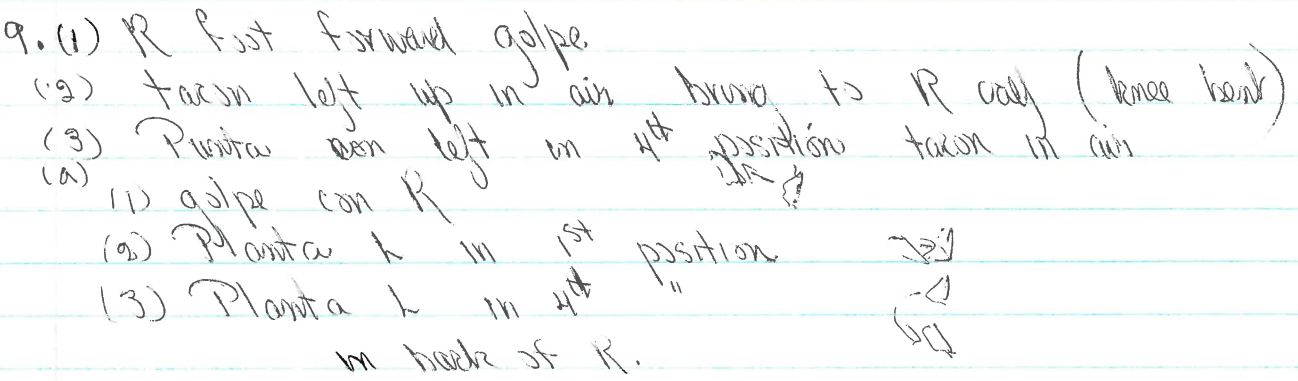 9. (1) R foot forward golpe
(2) tacon left up in air bring to R calf (knee bent)
(3) Punta con left in 4th position tacon in air
(a)
(1) golpe con R
(2) Planta L in 1st position
(3) Planta L in 4th "
in back of R.